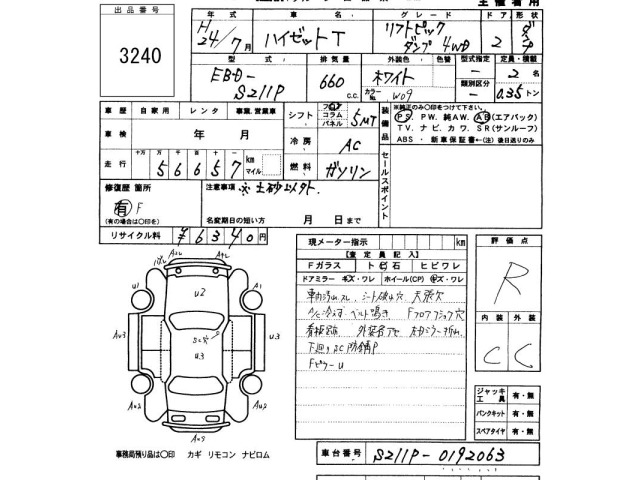 主催者用
出品番号
3240
年式 車名 グレード ドア 形状
H24/7月 ハイゼットT リフトピック ダンプ 4WD 2 ダンプ
型式 排気量 外装色 色替 型式指定 定員・積載
EBD-S211P 660 c.c. ホワイト カラーNo. W09 類別区分 2名 0.35トン
車歴 自家用 レンタ 事業.営業車
車検 年 月
シフト フロア コラム パネル 5MT
冷房 AC
走行 十万 万 56657 km マイル
燃料 ガソリン
装備品
※純正のみ〇印をつけて下さい。
PS. PW. 純AW. AB(エアバック)
TV. ナビ. カワ. SR(サンルーフ)
ABS ・ 新車保証書←(注)後日送りのみ
セールスポイント
修復歴 箇所
有 F
(有の場合は〇印を)
注意事項 ※土砂以外.
名変期日の短い方 月 日まで
リサイクル料 ¥6340円
現メーター指示 km
【査定員記入】
Fガラス トビ石 ヒビワレ
ドアミラー キズ・ワレ ホイール(CP) キズ・ワレ
シート破れ穴 天張穴
A/C冷えず ベルト鳴き Fフロアフック穴
下廻りSC 防錆P
FピラーU
評価点
R
内装 外装
C C
ジャッキ工具 有・無
パンクキット 有・無
スペアタイヤ 有・無
A2 U2 A1 A1 U3 U3 SC穴
事務局預り品は〇印 カギ リモコン ナビロム
車台番号 S211P-0192063